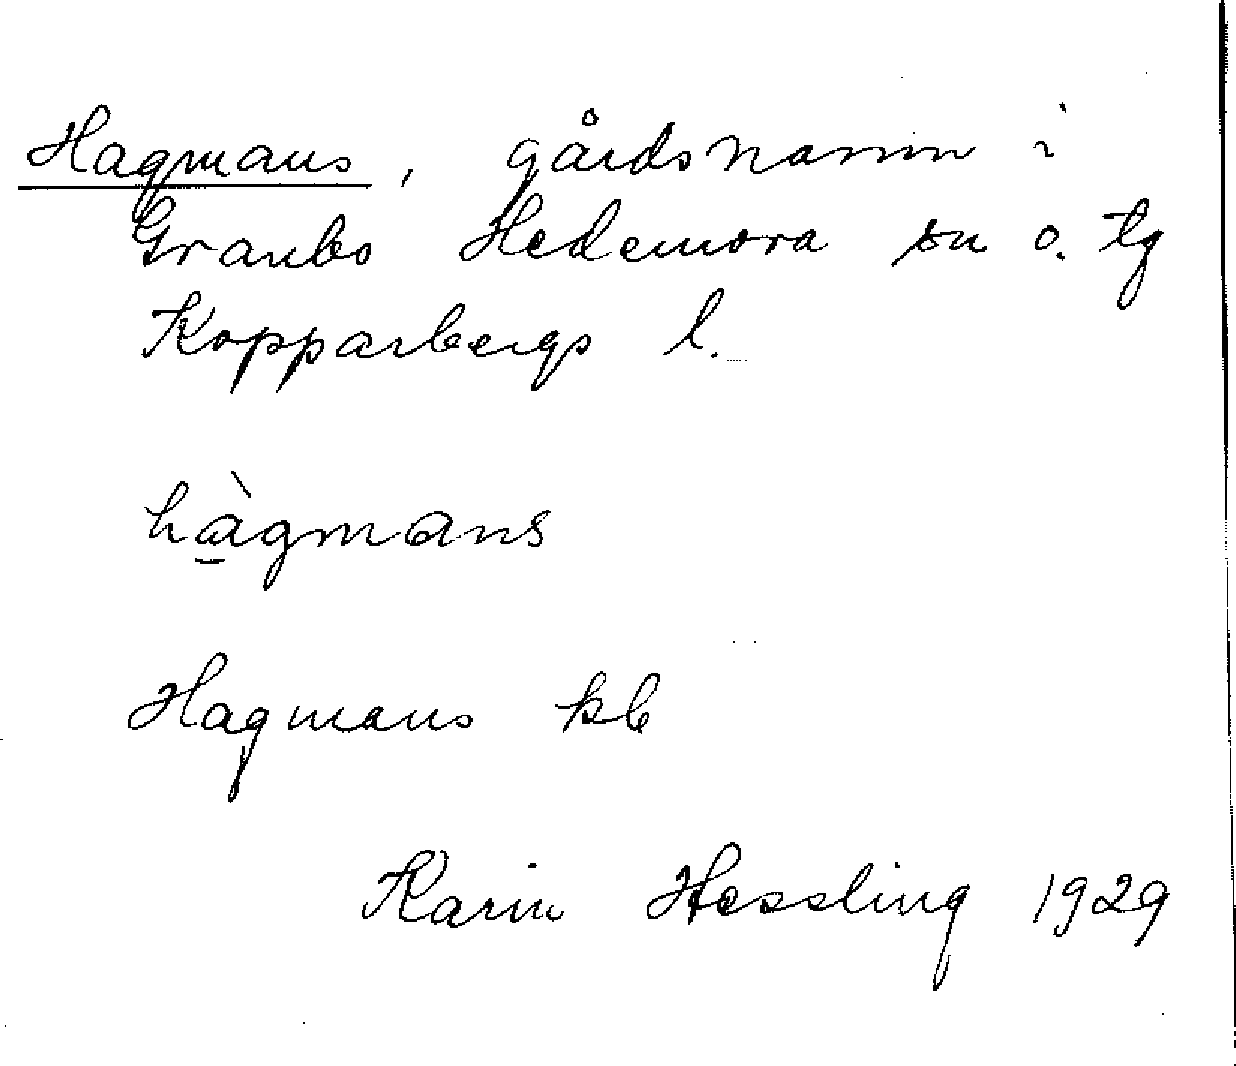 Hagmans, gårdsnamn i
Granbo Hedemora sn o. tg
Kopparbergs l.
hàgmans
Hagmans kb
Karin Hessling 1929